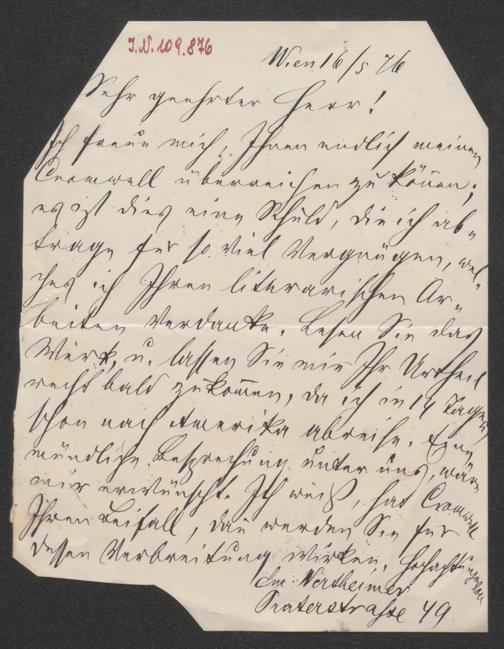 I.N. 109.876
Wien 16/5 76
Sehr geehrter Herr!
Ich freue mich, Ihnen endlich meinen
Cromwell überreichen zu können;
es ist dies eine Schuld, die ich ab-
trage für so viel Vergnügen, wel-
ches ich Ihren literarischen Ar-
beiten verdanke. Lesen Sie das
Werk, u. lassen Sie mir Ihr Urtheil
recht bald zukommen, da ich in 14 Tagen
schon nach Amerika abreise. Eine
mündliche Besprechung unter uns, wäre
mir erwünscht. Ich weiß, hat Cromwell
Ihren Beifall, dan werden Sie für
dessen Verbreitung wirken. Hochachtungsvoll
Em. Wertheimer
Praterstraße 49